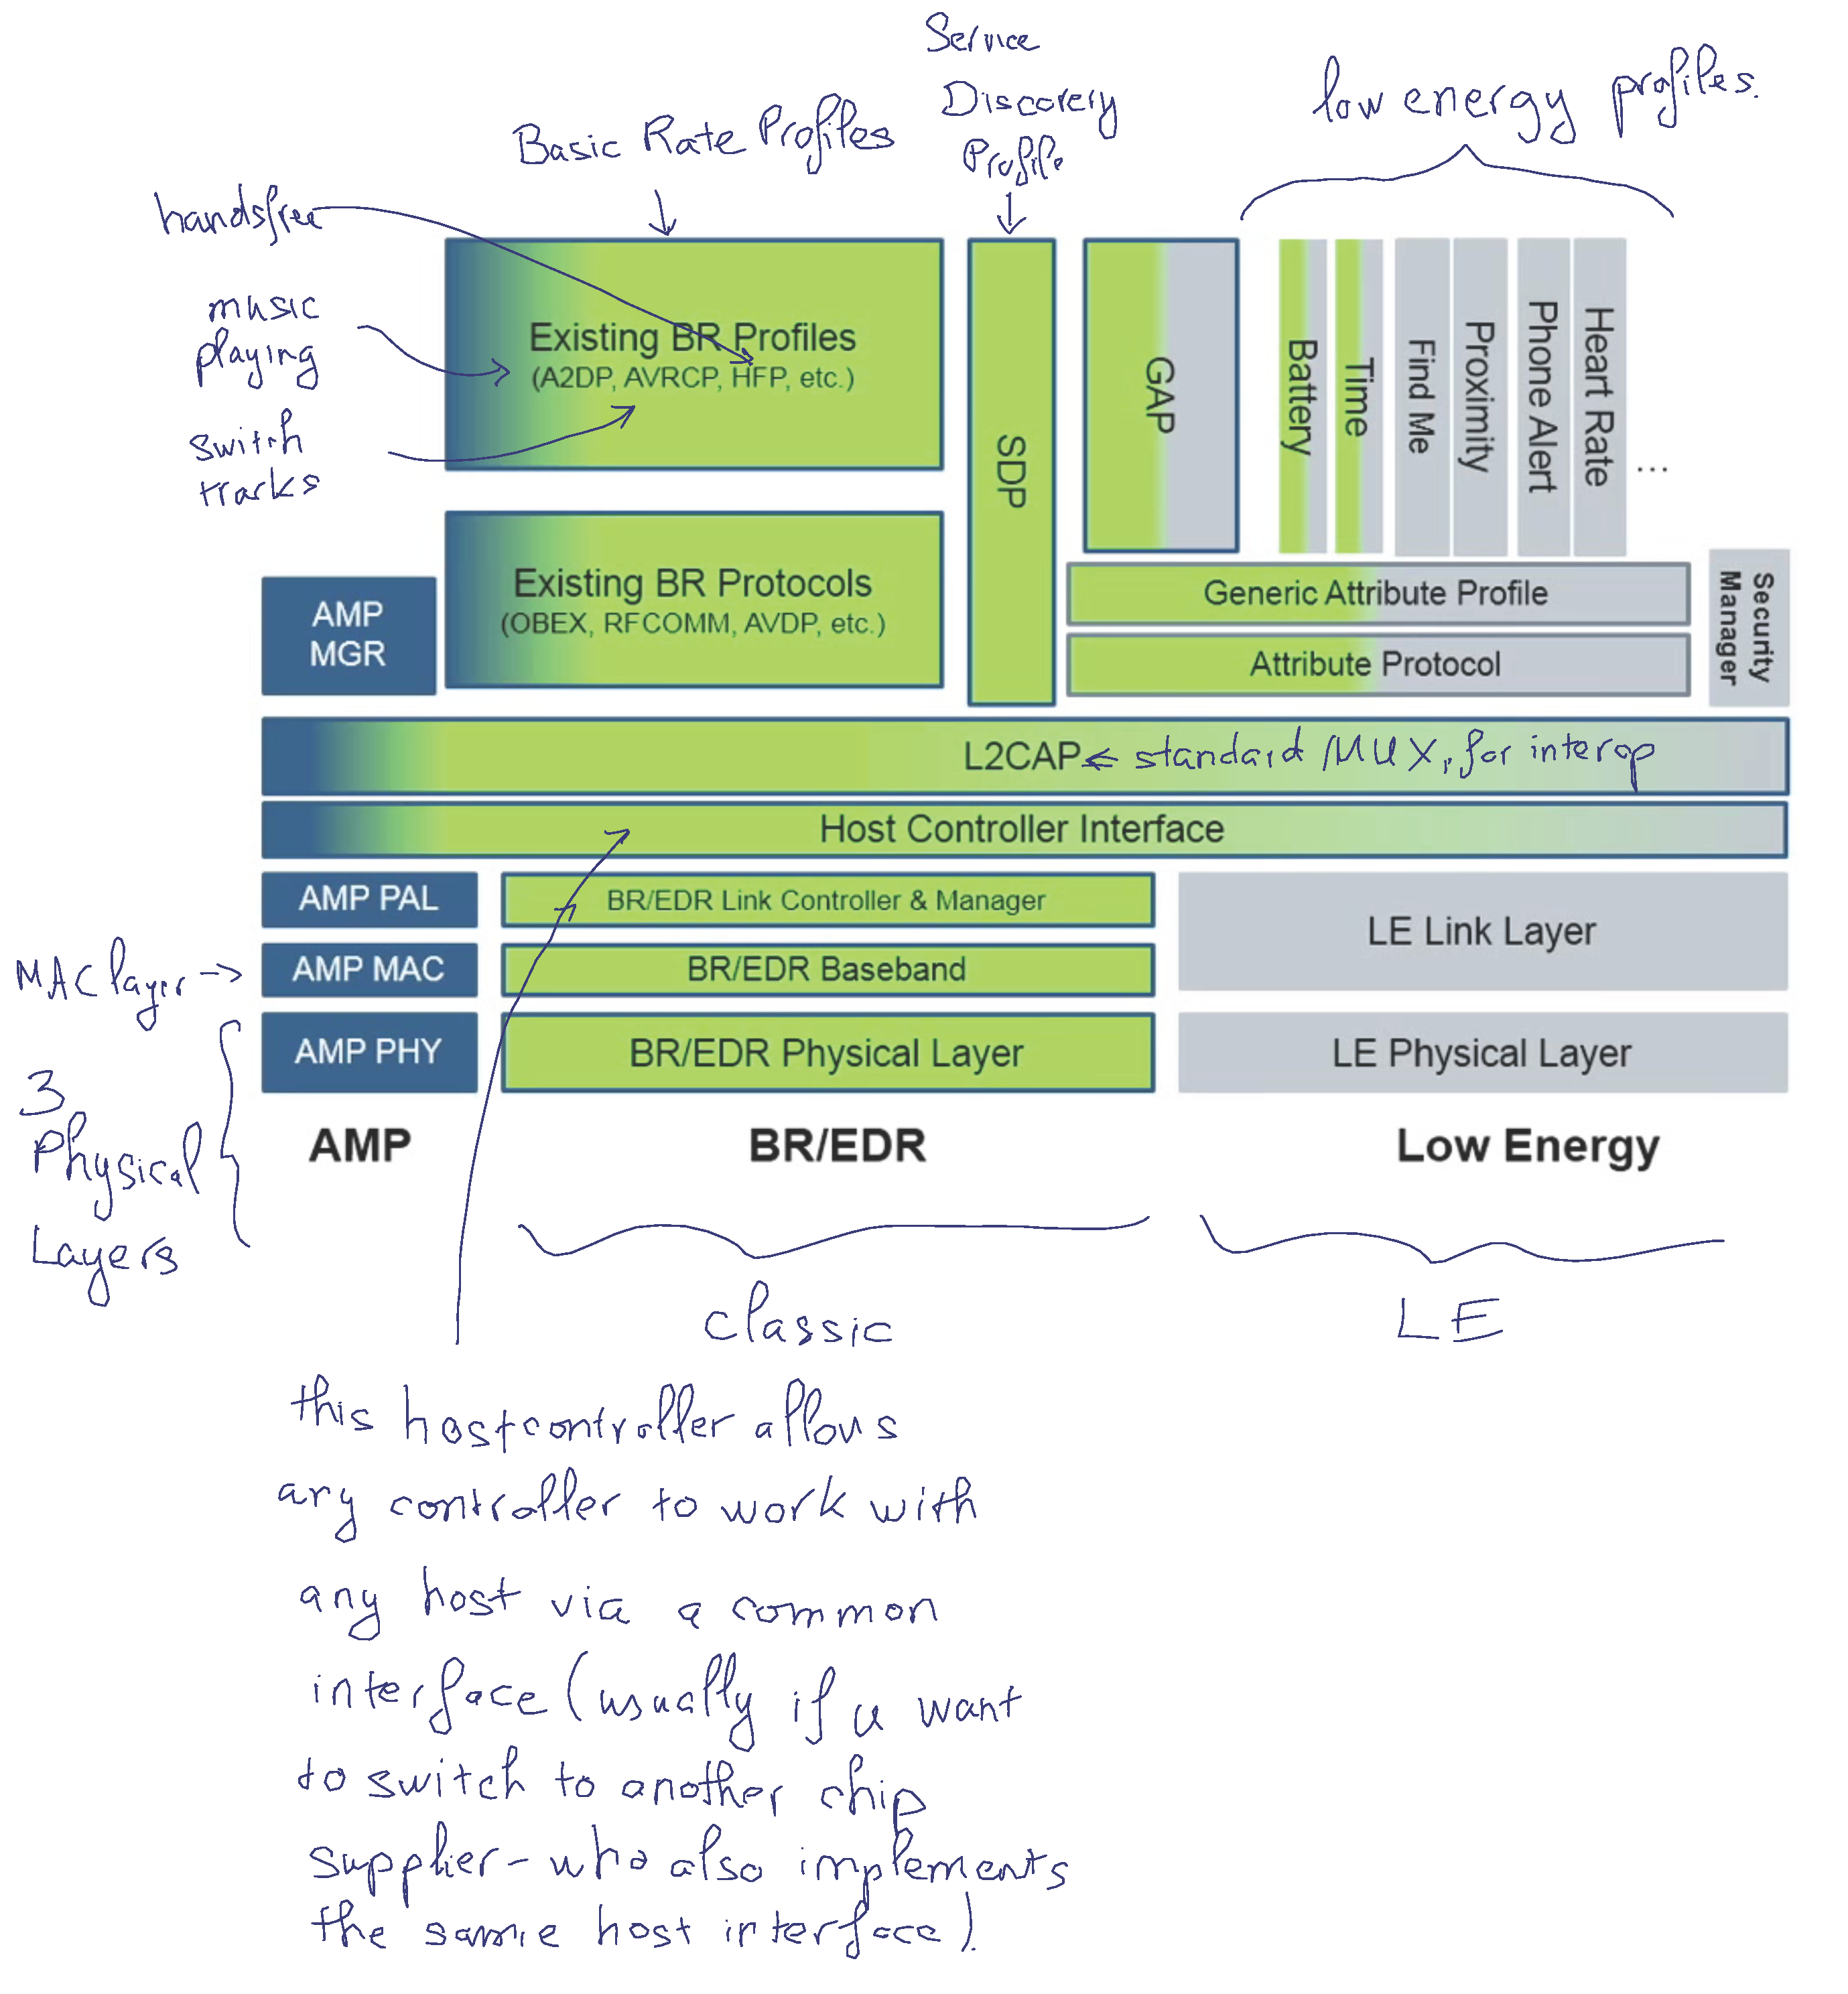 Service
Discovery
Profile
low energy profiles.
Basic Rate Profiles
handsfree
music
playing
switch
tracks
Existing BR Profiles
(A2DP, AVRCP, HFP, etc.)
SDP
GAP
Battery
Time
Find Me
Proximity
Phone Alert
Heart Rate
...
AMP
MGR
Existing BR Protocols
(OBEX, RFCOMM, AVDP, etc.)
Generic Attribute Profile
Attribute Protocol
Security
Manager
L2CAP ← standard MUX, for interop
Host Controller Interface
AMP PAL
BR/EDR Link Controller & Manager
LE Link Layer
MAC layer →
AMP MAC
BR/EDR Baseband
AMP PHY
BR/EDR Physical Layer
LE Physical Layer
3
Physical
Layers
AMP
BR/EDR
Low Energy
classic
LE
this hostcontroller allows
any controller to work with
any host via a common
interface (usually if u want
to switch to another chip
supplier - who also implements
the same host interface).